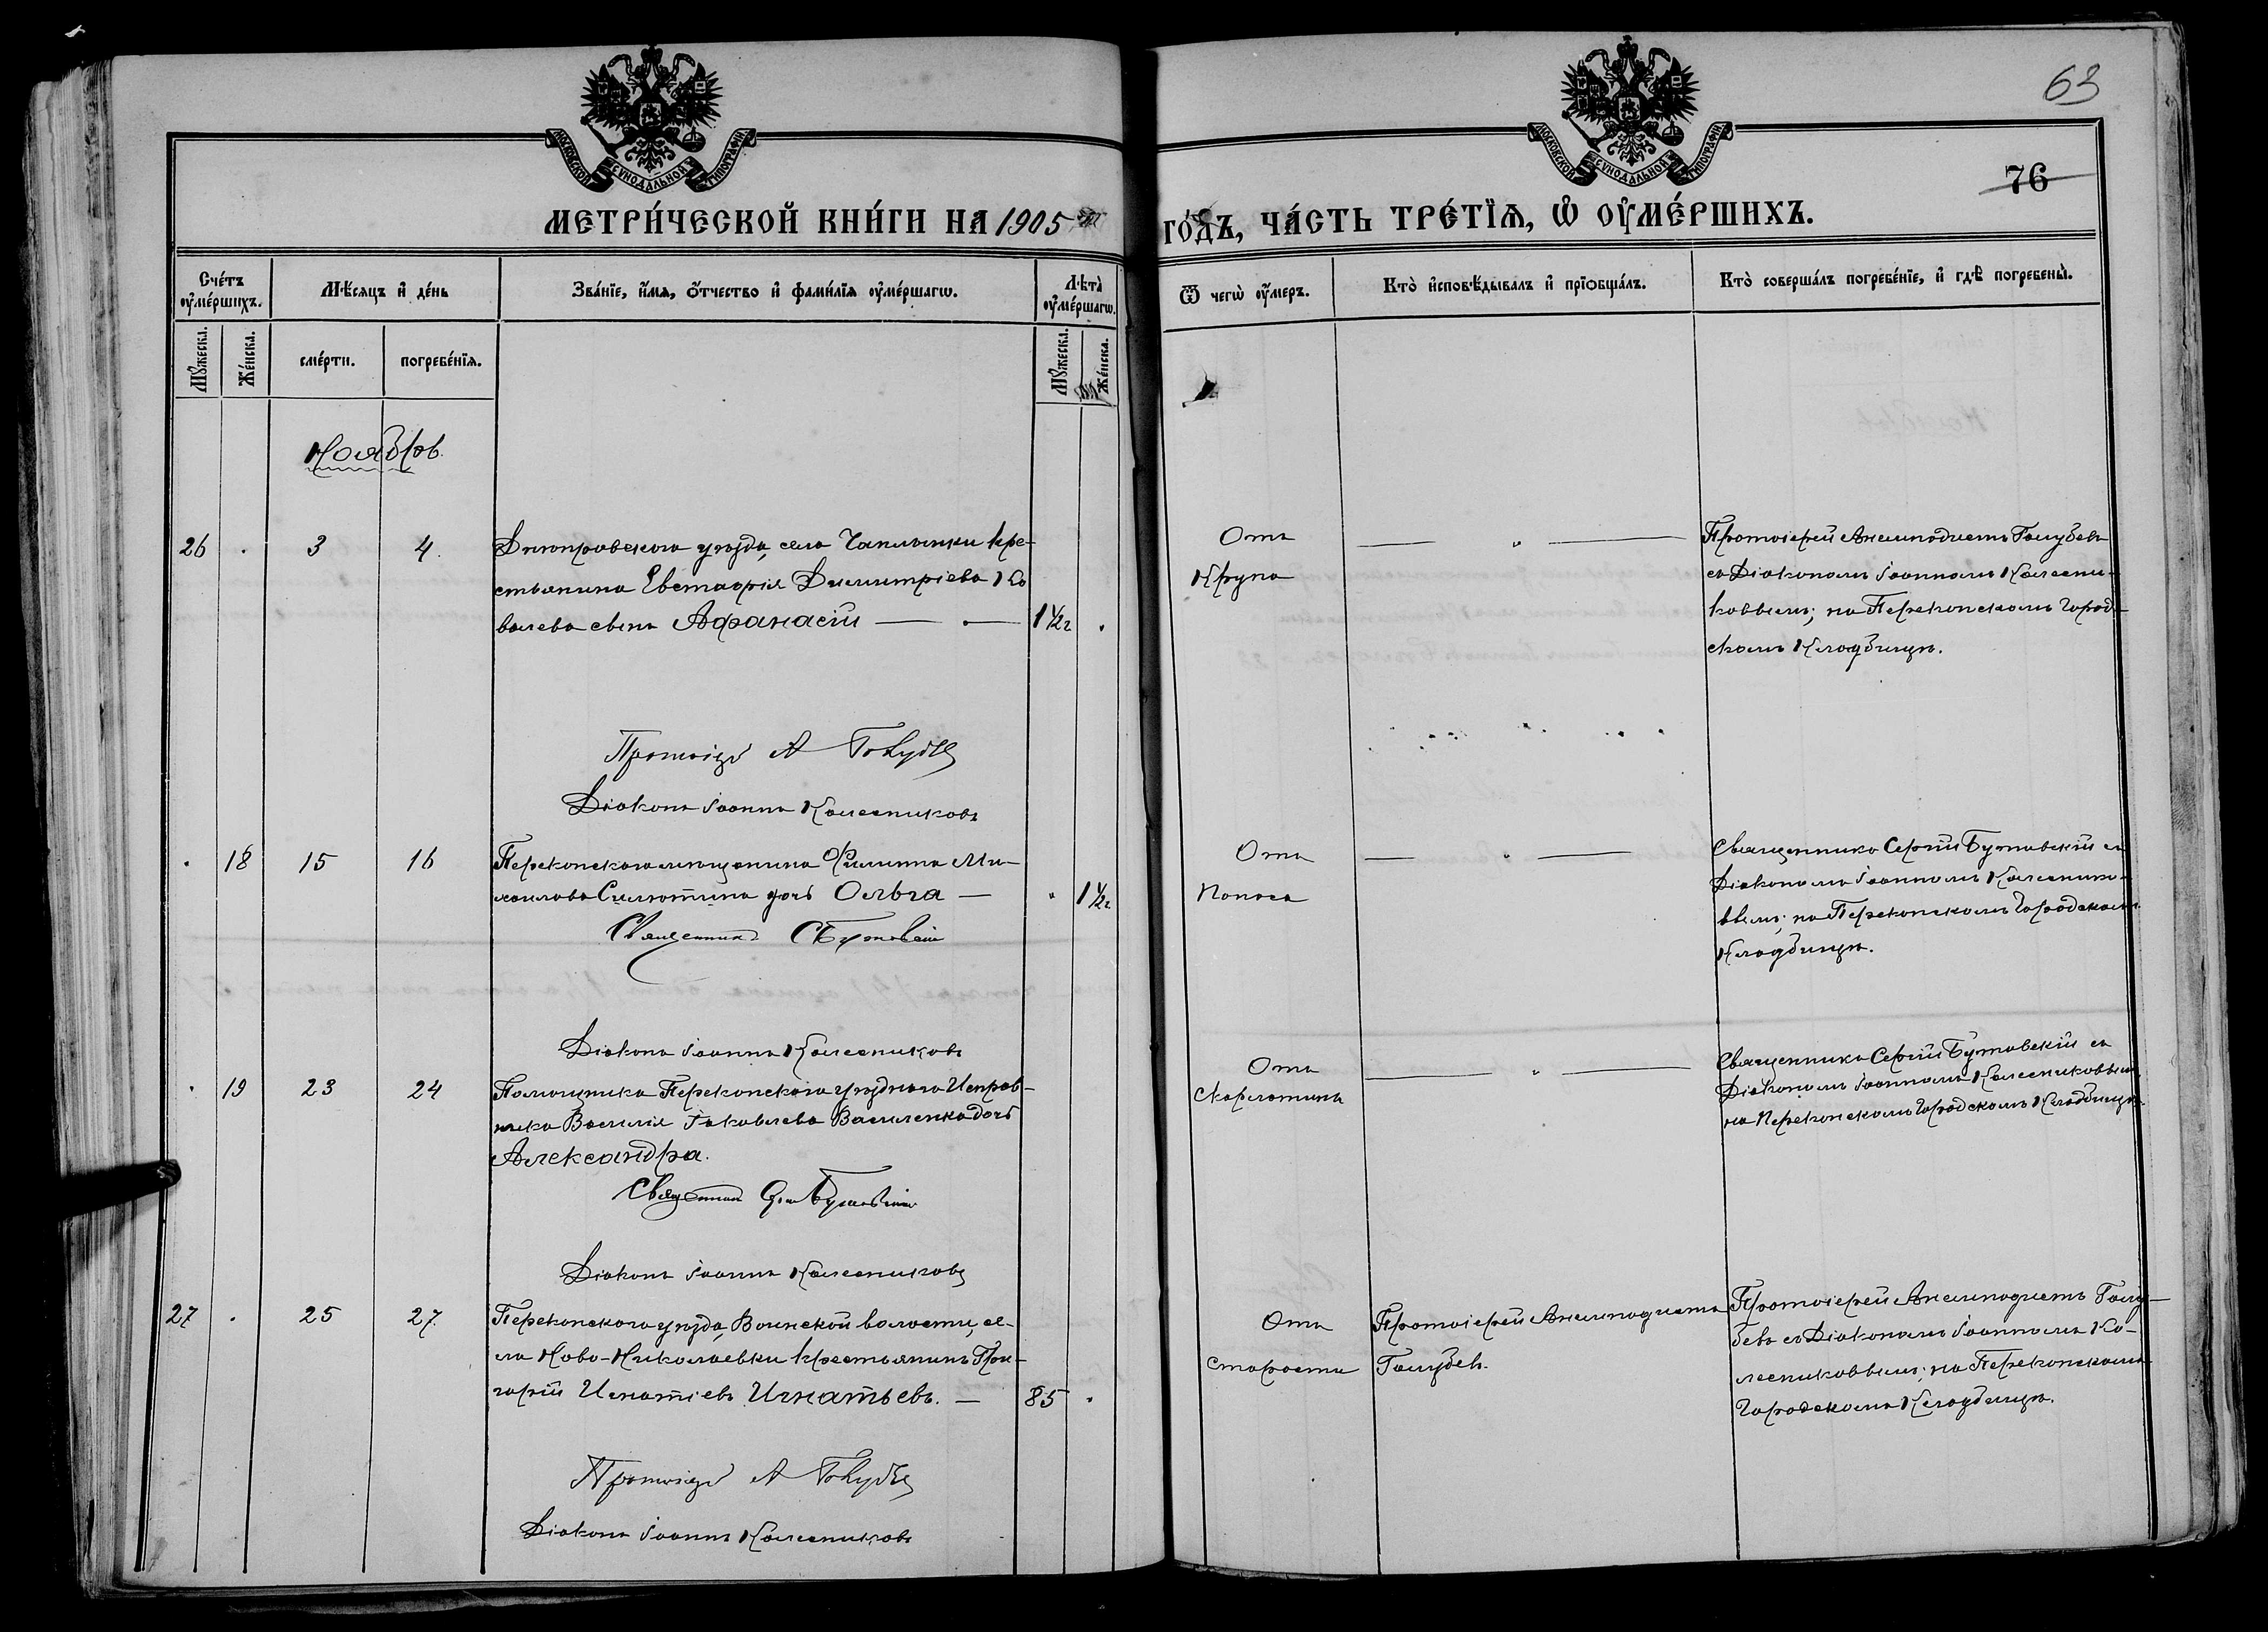 63
76
МОСКОВСКОЙ СѴНОДАЛЬНОЙ ТИПОГРАФІИ
МОСКОВСКОЙ СѴНОДАЛЬНОЙ ТИПОГРАФІИ
МЕТРИ́ЧЕСКОЙ КНИ́ГИ НА 1905
ГО́ДЪ, ЧА́СТЬ ТРЕ́ТІѦ, Ѡ ОУ҆МЕ́РШИХЪ.
Сче́тъ оу҆ме́ршихъ.
Мѣ́сяцъ и҆ де́нь
Зва́нїе, и҆́мя, ѻ҆́тчество и҆ фами́лїя оу҆ме́ршагѡ.
Лѣта̀ оу҆ме́ршагѡ.
Ѿ чегѡ̀ оу҆́меръ.
Кто̀ и҆сповѣ́дывалъ и҆ прїѡбща́лъ.
Кто̀ соверша́лъ погребе́нїе, и҆ гдѣ̀ погребены̀.
Мꙋ́жеска.
Же́нска.
сме́рти.
погребе́нїя.
Мꙋ́жеска.
Же́нска.
Ноябрь
26 . 3 4. Днѣпровскаго уѣзда, села Чаплынки кре-
стьянина Евстафія Димитріева Ко
валева сынъ Афанасій — 1½ г .
Отъ
Крупа
— „ —
Протоіерей Анемподистъ Голубевъ
съ Діакономъ Іоанномъ Колесни-
ковымъ; на Перекопскомъ Город-
скомъ Кладбищѣ.
Протоіер А Голубев
Діаконъ Іоаннъ Колесниковъ
. 18 15 16 Перекопскаго мѣщанина Филиппа Ми-
хаилова Силютина дочь Ольга — „ 1½ г
Священникъ С Бутовскій
Отъ
Поноса
— „ —
Священникъ Сергій Бутовскій съ
Діакономъ Іоанномъ Колеснико-
вымъ; на Перекопскомъ Городскомъ
Кладбищѣ.
Діаконъ Іоаннъ Колесниковъ
. 19 23 24 Помощника Перекопскаго уѣзднаго Исправ-
ника Василія Іаковлева Василенка дочь
Александра.
Отъ
Скарлотины
— „ —
Священникъ Сергій Бутовскій съ
Діакономъ Іоанномъ Колесниковымъ
на Перекопскомъ Городскомъ Кладбищѣ
Священникъ Бутовскій
Діаконъ Іоаннъ Колесниковъ
27 . 25 27 Перекопскаго уѣзда, Воинской волости, се-
ла Ново-Николаевки крестьянинъ Гри-
горій Игнатіевъ Игнатьевъ. — 85 .
Отъ
старости
Протоіерей Анемподистъ
Голубевъ.
Протоіерей Анемподистъ Голу-
бевъ съ Діакономъ Іоанномъ Ко-
лесниковымъ; на Перекопскомъ
Городскомъ Кладбищѣ.
Протоіер А Голубев
Діаконъ Іоаннъ Колесниковъ